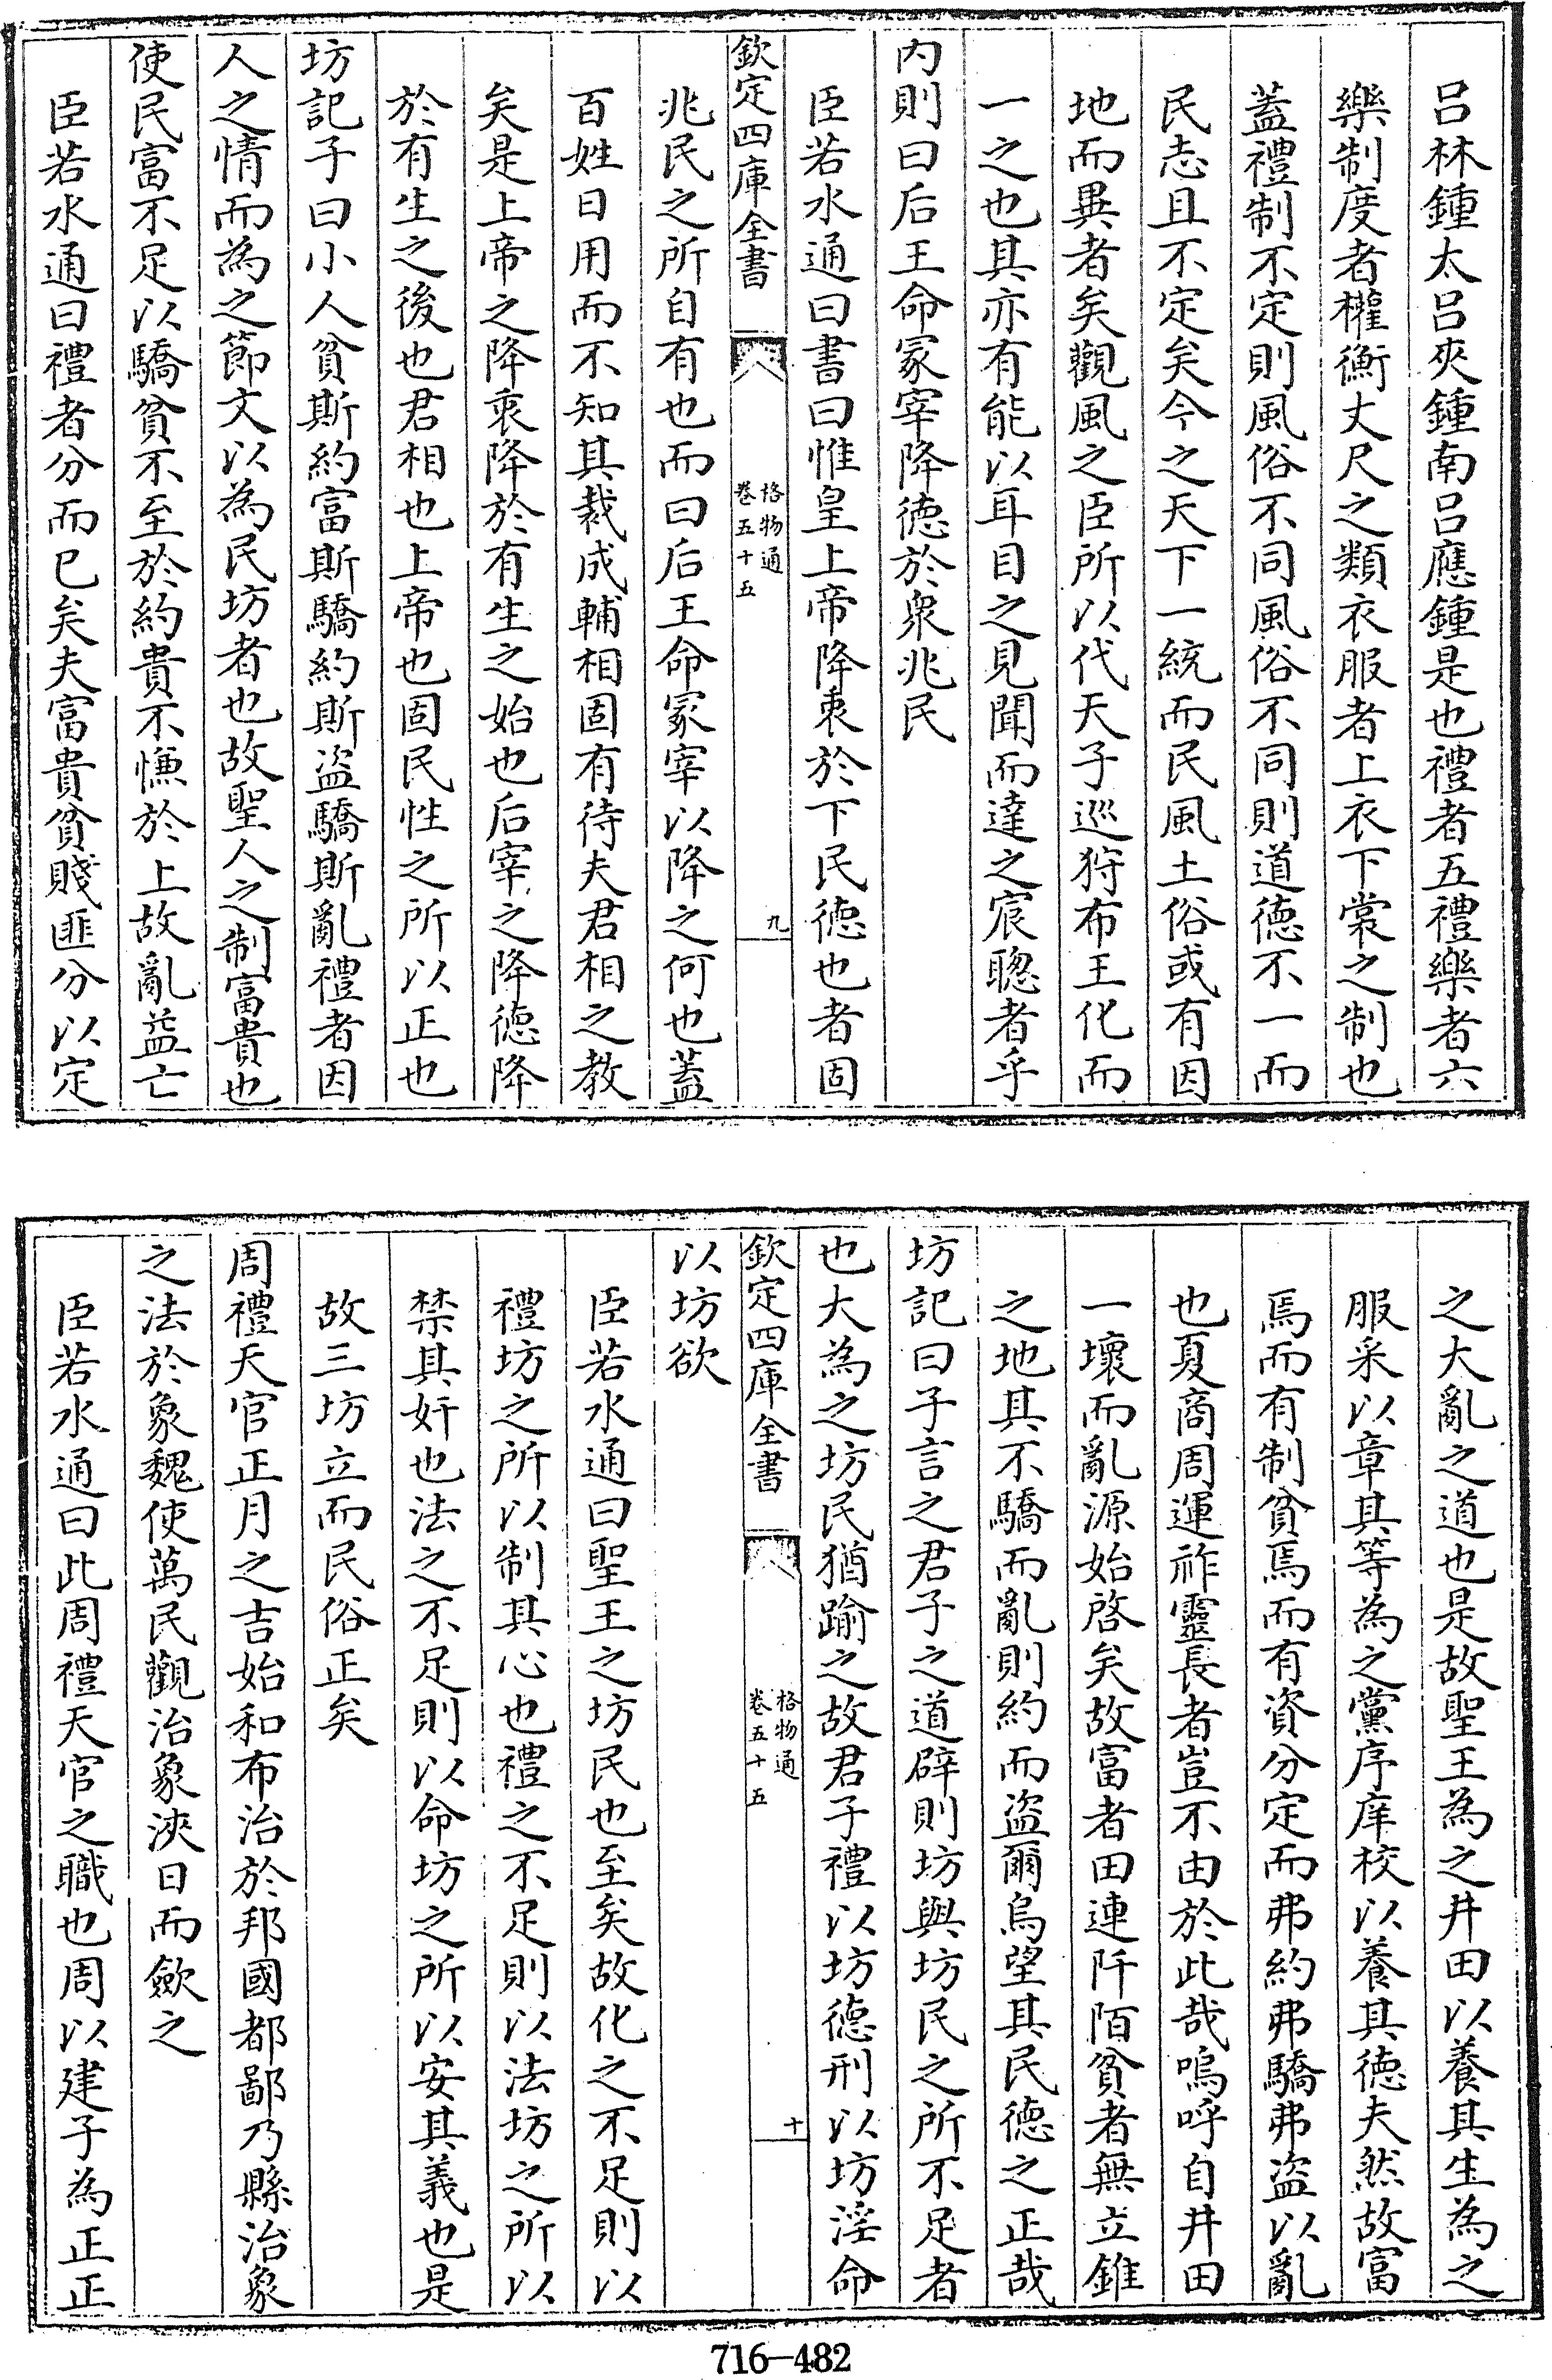 呂林鍾太呂夾鍾南呂應鍾是也禮者五禮樂者六
樂制度者權衡丈尺之類衣服者上衣下裳之制也
蓋禮制不定則風俗不同風俗不同則道徳不一而
民志且不定矣今之天下一統而民風土俗或有因
地而異者矣觀風之臣所以代天子巡狩布王化而
一之也其亦有能以耳目之見聞而達之宸聰者乎
内則曰后王命冢宰降徳於衆兆民
臣若水通曰書曰惟皇上帝降衷於下民徳也者固
欽定四庫全書
格物通
卷五十五
九
兆民之所自有也而曰后王命冢宰以降之何也蓋
百姓日用而不知其裁成輔相固有待夫君相之教
矣是上帝之降衷降於有生之始也后宰之降徳降
於有生之後也君相也上帝也固民性之所以正也
坊記子曰小人貧斯約富斯驕約斯盜驕斯亂禮者因
人之情而為之節文以為民坊者也故聖人之制富貴也
使民富不足以驕貧不至於約貴不慊於上故亂益亡
臣若水通曰禮者分而已矣夫富貴貧賤匪分以定
之大亂之道也是故聖王為之井田以養其生為之
服采以章其等為之黨序庠校以養其徳夫然故富
焉而有制貧焉而有資分定而弗約弗驕弗盜以亂
也夏商周運祚靈長者豈不由於此哉嗚呼自井田
一壞而亂源始啓矣故富者田連阡陌貧者無立錐
之地其不驕而亂則約而盜爾烏望其民徳之正哉
坊記曰子言之君子之道辟則坊與坊民之所不足者
也大為之坊民猶踰之故君子禮以坊徳刑以坊淫命
欽定四庫全書
格物通
卷五十五
十
以坊欲
臣若水通曰聖王之坊民也至矣故化之不足則以
禮坊之所以制其心也禮之不足則以法坊之所以
禁其奸也法之不足則以命坊之所以安其義也是
故三坊立而民俗正矣
周禮天官正月之吉始和布治於邦國都鄙乃縣治象
之法於象魏使萬民觀治象浹日而歛之
臣若水通曰此周禮天官之職也周以建子為正正
716—482